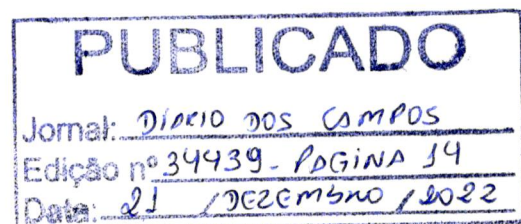 PUBLICADO
Jornal: DIÁRIO DOS CAMPOS
Edição nº 34439 - PÁGINA 14
Data: 21 / DEZEMBRO / 2022